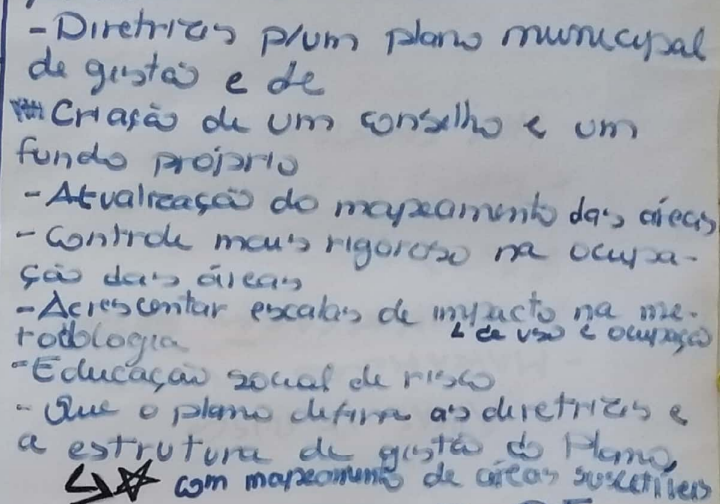 - Diretrizes p/um plano municipal
de gestão e de
Criação de um conselho e um
fundo próprio
- Atualização do mapeamento das áreas
- Controle mais rigoroso na ocupa-
ção das áreas
- Acrescentar escalas de impacto na me-
todologia ↳ de uso e ocupação
- Educação social de risco
- Que o plano defina as diretrizes e
a estrutura de gestão do Plano,
↳☆ com mapeamento de áreas suscetíveis